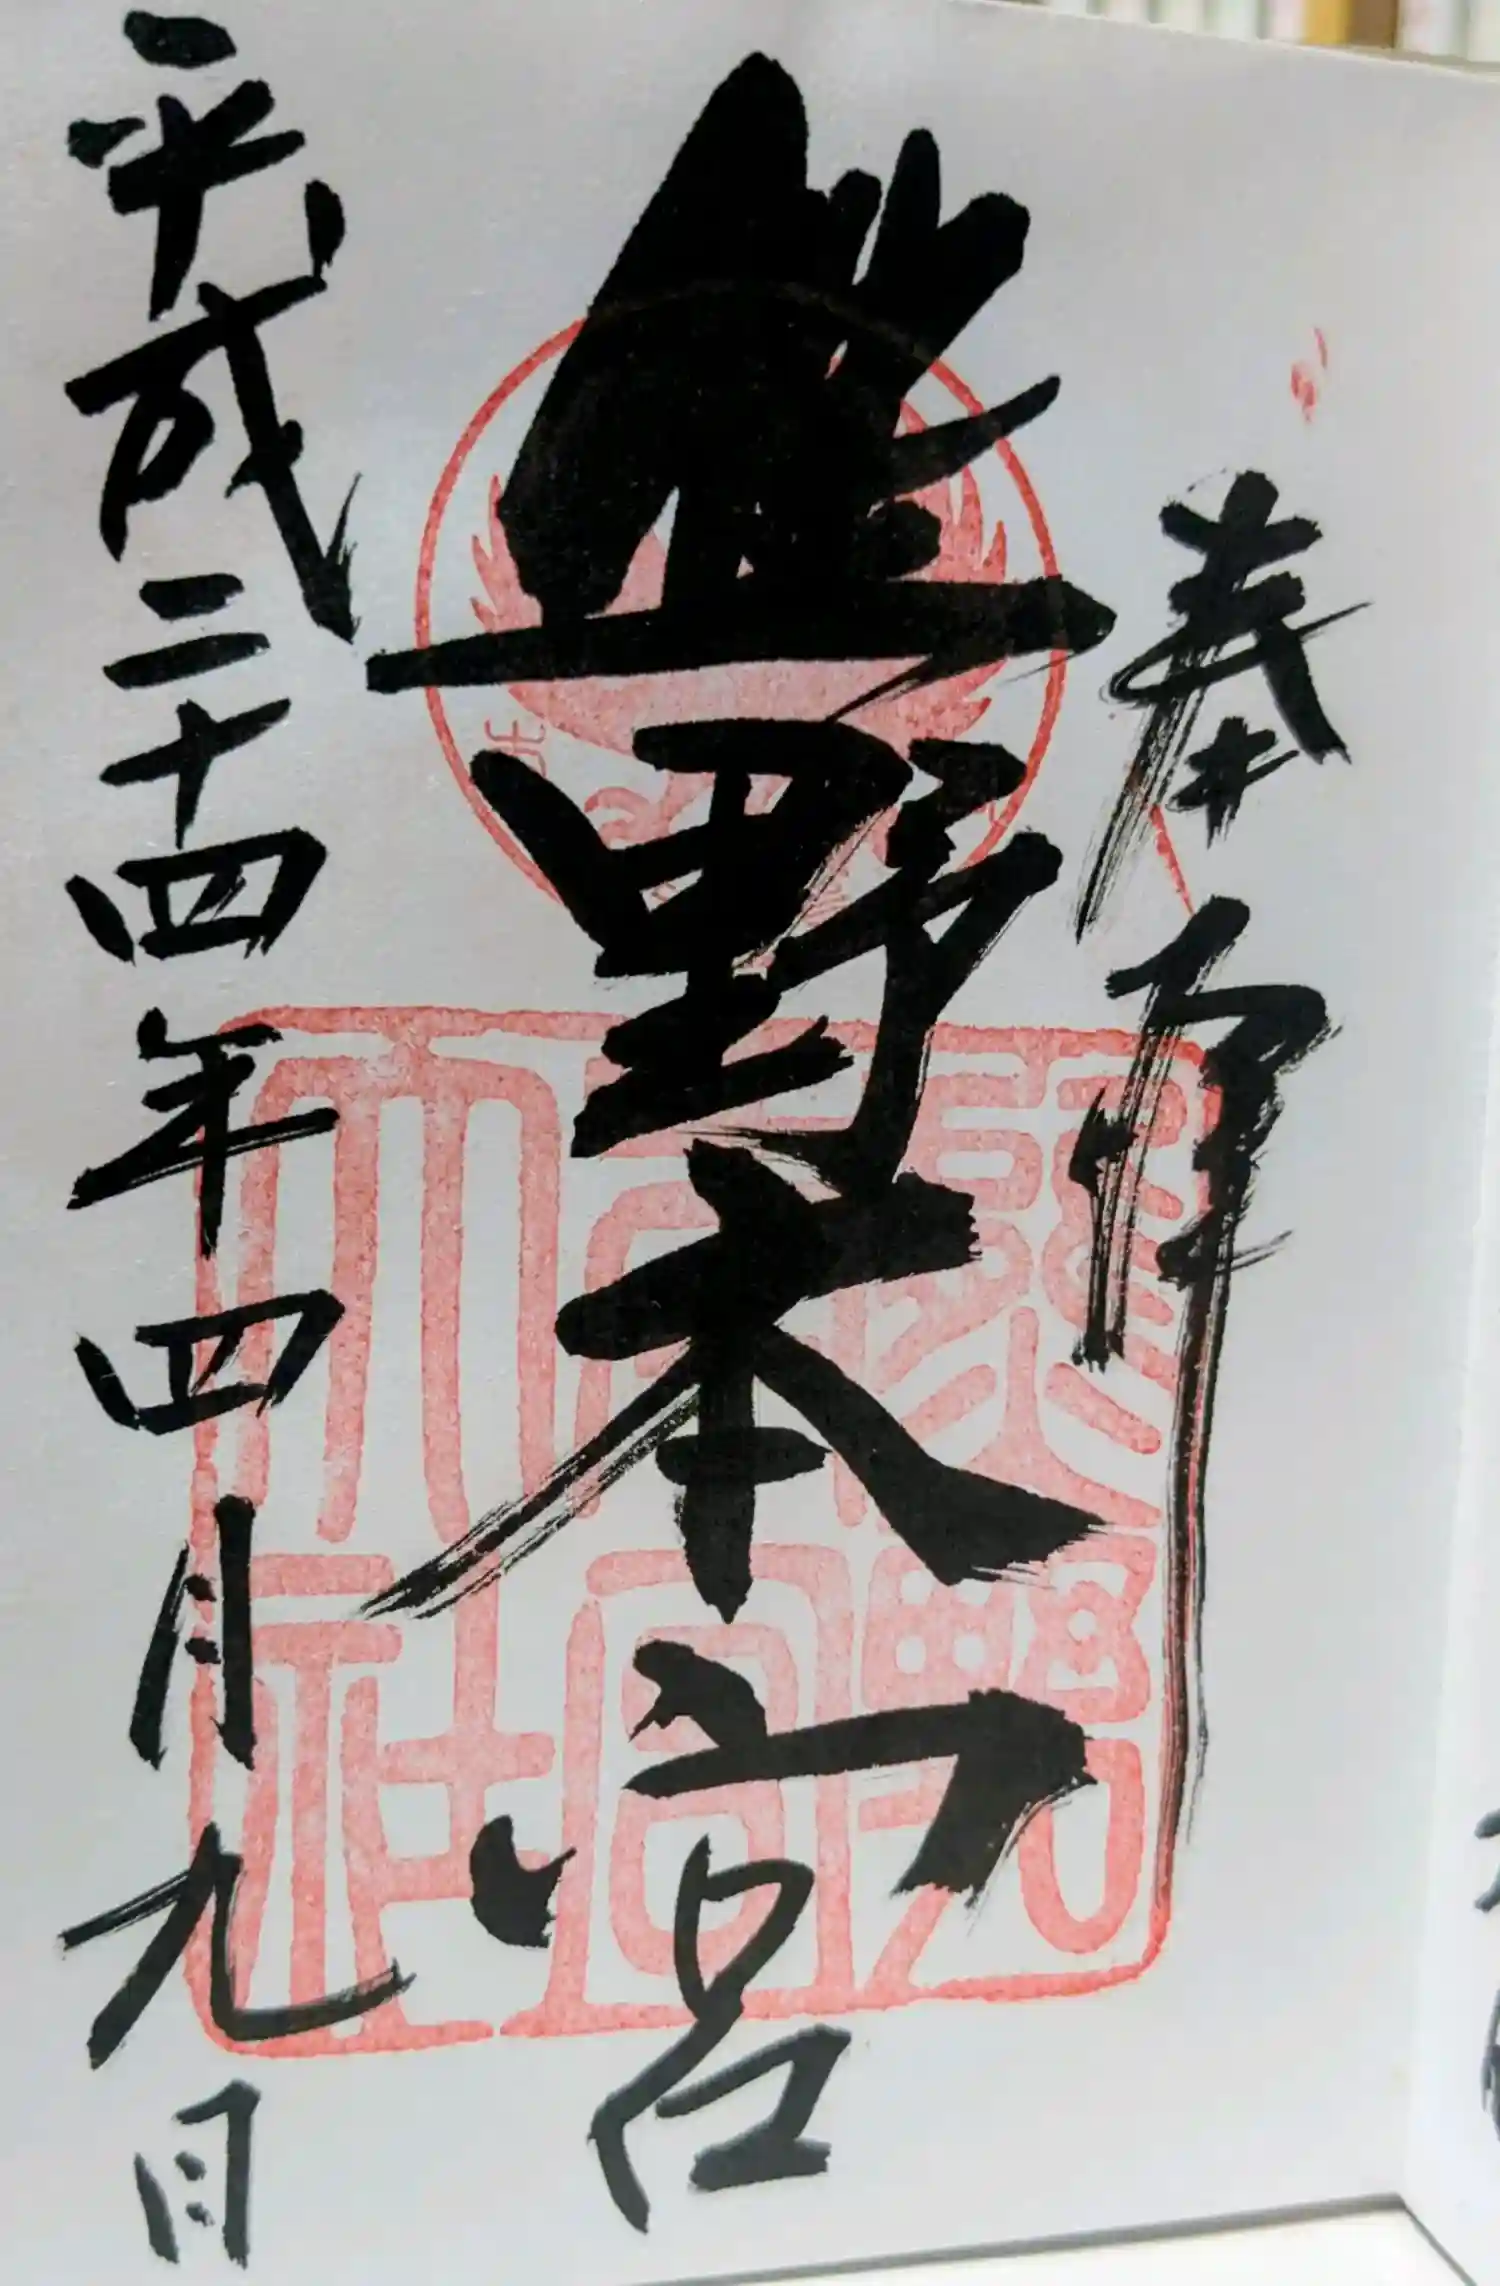 奉拝
熊野本宮
平成二十四年四月九日
熊野
本宮
大社